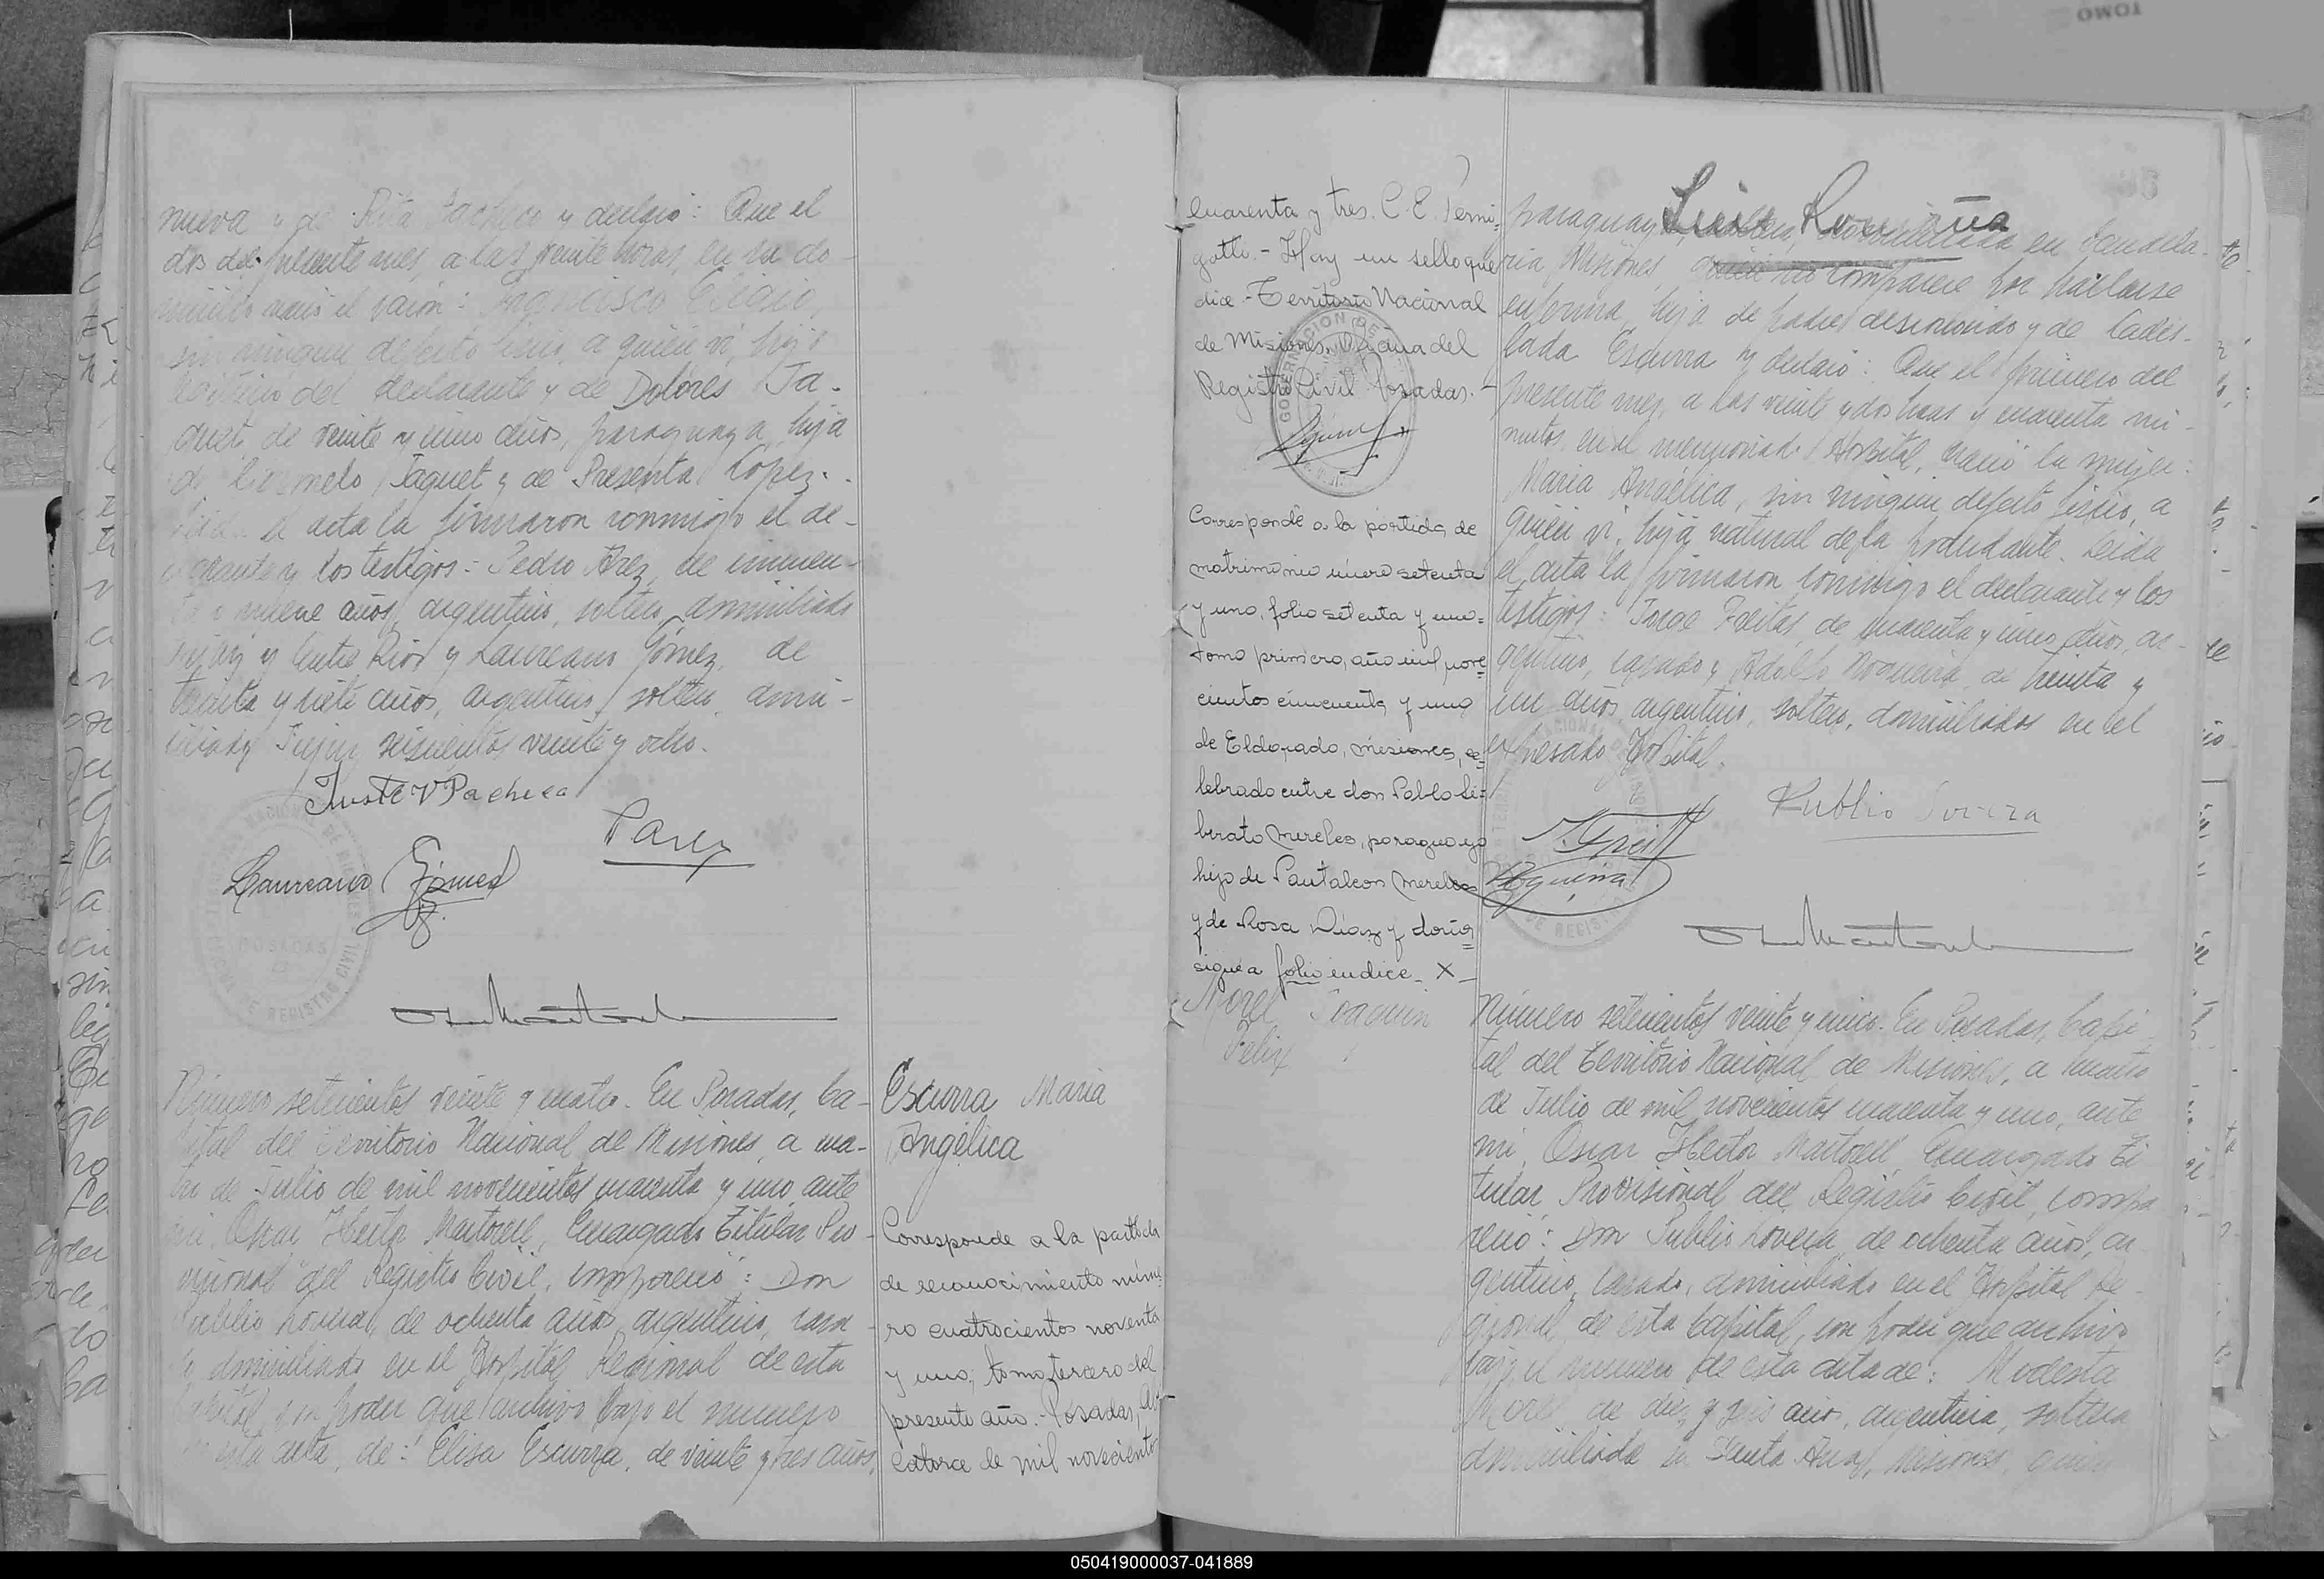 nueva y de Rita Pacheco y declaró: Que el
dos del presente mes, a las veinte horas, en su do-
micilio nació el varón: Francisco Eligio,
sin ningún defecto físico, a quién vi, hijo
legítimo del declarante y de Dolores Ja-
quet, de veinte y cinco años, paraguaya, hija
de Carmelo Jaquet y de Presenta López.
Leída el acta la firmaron conmigo el de-
clarante y los testigos: Pedro Arez, de cincuen-
ta y nueve años, argentino, soltero, domiciliado
y Entre Ríos y Laureano Gómez, de
treinta y siete años, argentino, soltero, domi-
ciliado Jujuy seiscientos veinte y ocho.
Justo V Pacheco
P Arez
Laureano Gómez
POSADAS
Número setecientos veinte y cuatro. En Posadas, Ca-
pital del Territorio Nacional de Misiones, a cua-
tro de Julio de mil novecientos cuarenta y uno, ante
mi, Oscar Héctor Martorell, Encargado Titular Pro-
visional del Registro Civil, compareció: Don
Publio Lovera, de ochenta años, argentino, casa-
do, domiciliado en el Hospital Regional de esta
Capital, con poder que archivo bajo el número
de esta acta, de: Elisa Escurra, de veinte y tres años,
Escurra María
Angélica
Corresponde a la partida
de reconocimiento núme-
ro cuatrocientos noventa
y uno, tomo tercero del
presente año.- Posadas,
catorce de mil noveciento
cuarenta y tres. C. E. Perni-
gotti.- Hay un sello que
dice - Territorio Nacional
de Misiones. Oficina del
Registro Civil Posadas.-
Corresponde a la partida de
matrimonio número setenta
y uno, folio setenta y uno-
tomo primero, año mil nove-
cientos cincuenta y uno
de Eldorado, Misiones, ce-
lebrado entre don Pablo Li-
berato Mereles, paraguayo
hijo de Pantaleon Mereles
y de Rosa Díaz y doña
sigue a folio indice - X -
Morel Joaquin
Felix
Luis
paraguaya, soltera, domiciliada en Candela-
ria, Misiones, quien no comparece por hallarse
enferma, hija de padre desconocido y de Ladis-
lada Escurra y declaró: Que el primero del
presente mes, a las veinte y dos horas y cuarenta mi-
nutos, en el mencionado Hospital, nació la mujer:
María Angélica, sin ningún defecto físico, a
quién vi, hija natural de la poderdante. Leída
el acta la firmaron conmigo el declarante y los
testigos: Jorge Freitas, de cuarenta y cinco años, ar-
gentino, casado y Adolfo Nogueira, de treinta y
un años, argentino, soltero, domiciliados en el
expresado Hospital.
Publio Lovera
J. Freitas
Nogueira
Número setecientos veinte y cinco. En Posadas, Capi-
tal del Territorio Nacional de Misiones, a cuatro
de Julio de mil novecientos cuarenta y uno, ante
mi, Oscar Héctor Martorell, Encargado Ti-
tular Provisional del Registro Civil, compa-
reció: Don Publio Lovera, de ochenta años, ar-
gentino, casado, domiciliado en el Hospital Re-
gional de esta Capital, con poder que archivo
bajo el número de esta acta de: Modesta
Morel, de diez y seis años, argentina, soltera
domiciliada en Santa Ana, Misiones, quien
050419000037-041889